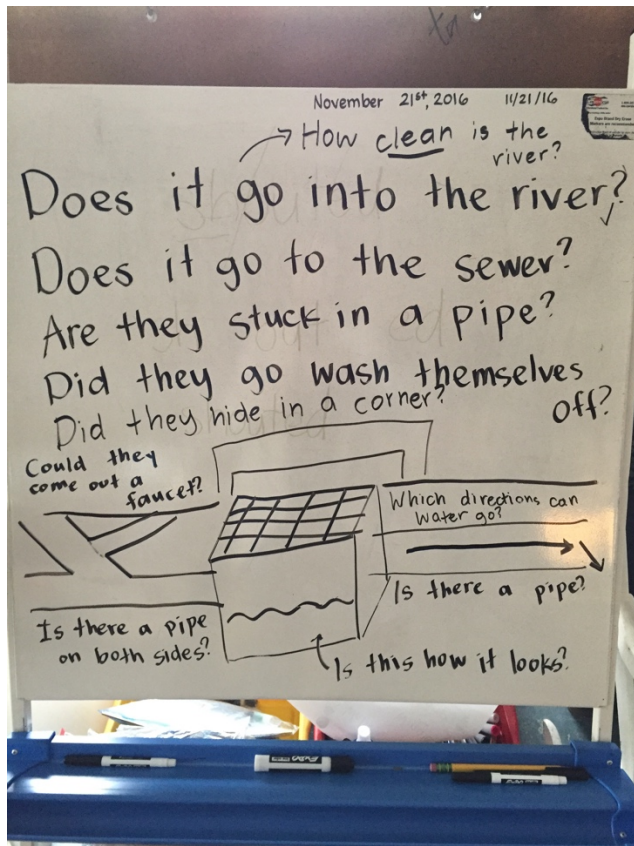 November 21st, 2016 11/21/16
How clean is the
river?
Does it go into the river?
Does it go to the sewer?
Are they stuck in a pipe?
Did they go wash themselves
off?
Did they hide in a corner?
Could they
come out a
faucet?
Which directions can
water go?
Is there a pipe?
Is there a pipe
on both sides?
Is this how it looks?